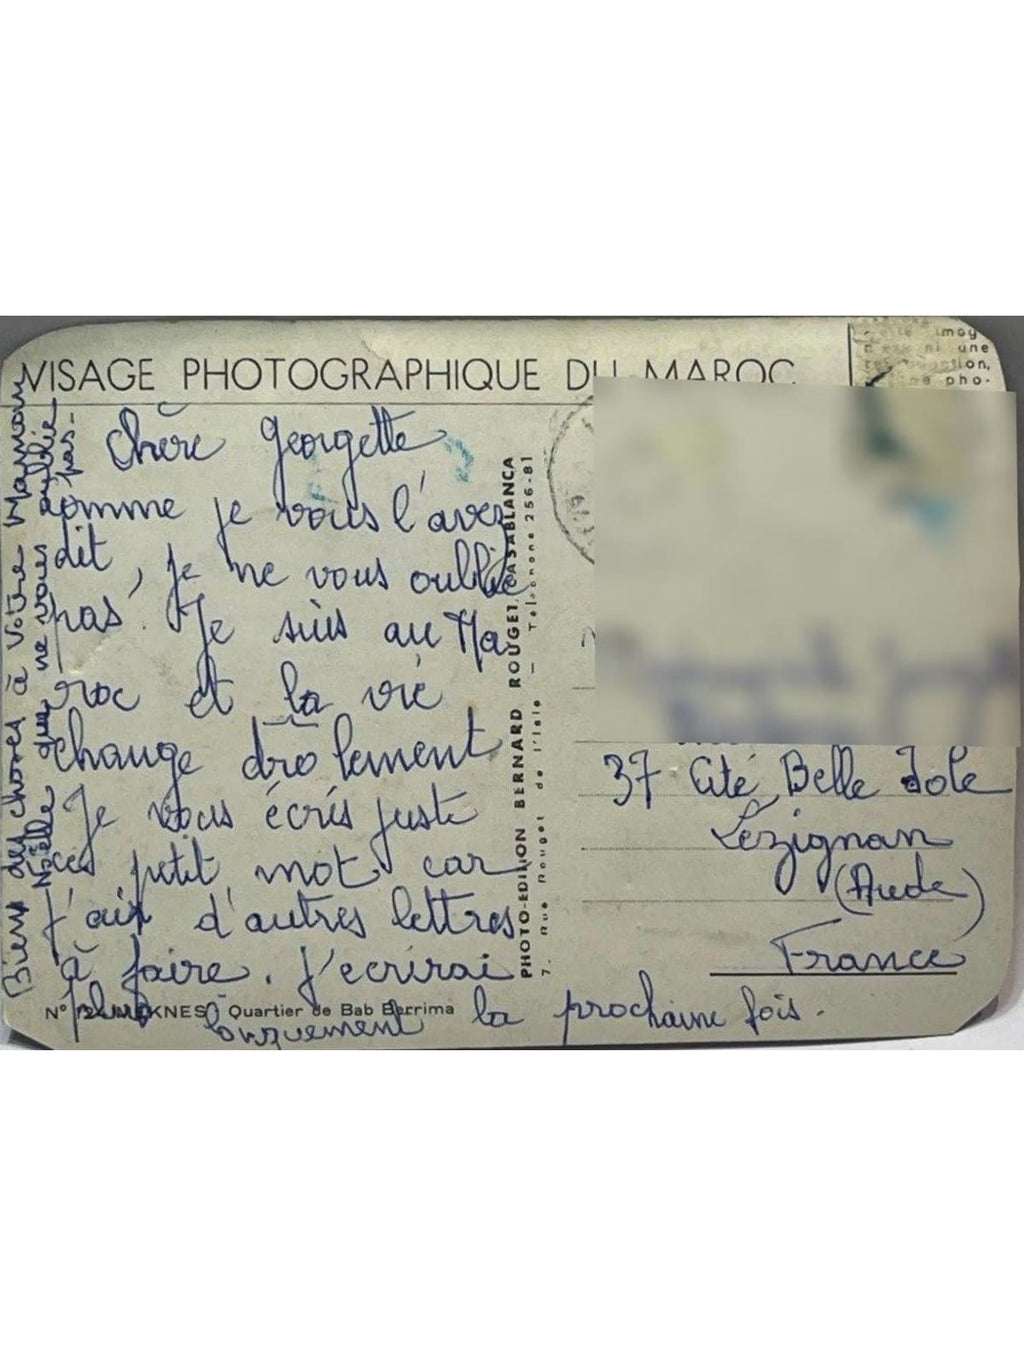 VISAGE PHOTOGRAPHIQUE DU MAROC
Chère Georgette
comme je vous l'avez
dit, je ne vous oublie
pas. Je suis au Ma
roc et la vie
change drolement
Je vous écris juste
ces petit mot car
j'ais d'autres lettres
à faire. J'ecrirai
plus longuement la prochaine fois.
Bien des choses à Votre Maman
Noëlle que ne vous oublie
pas-
N° MEKNES - Quartier de Bab Berrima
PHOTO-EDITION BERNARD ROUGET, CASABLANCA
7. Rue Rouget de l'Isle — Telephone 256-81
imag
ni une
pho-
37 Cité Belle Isle
Lézignan
(Aude)
France